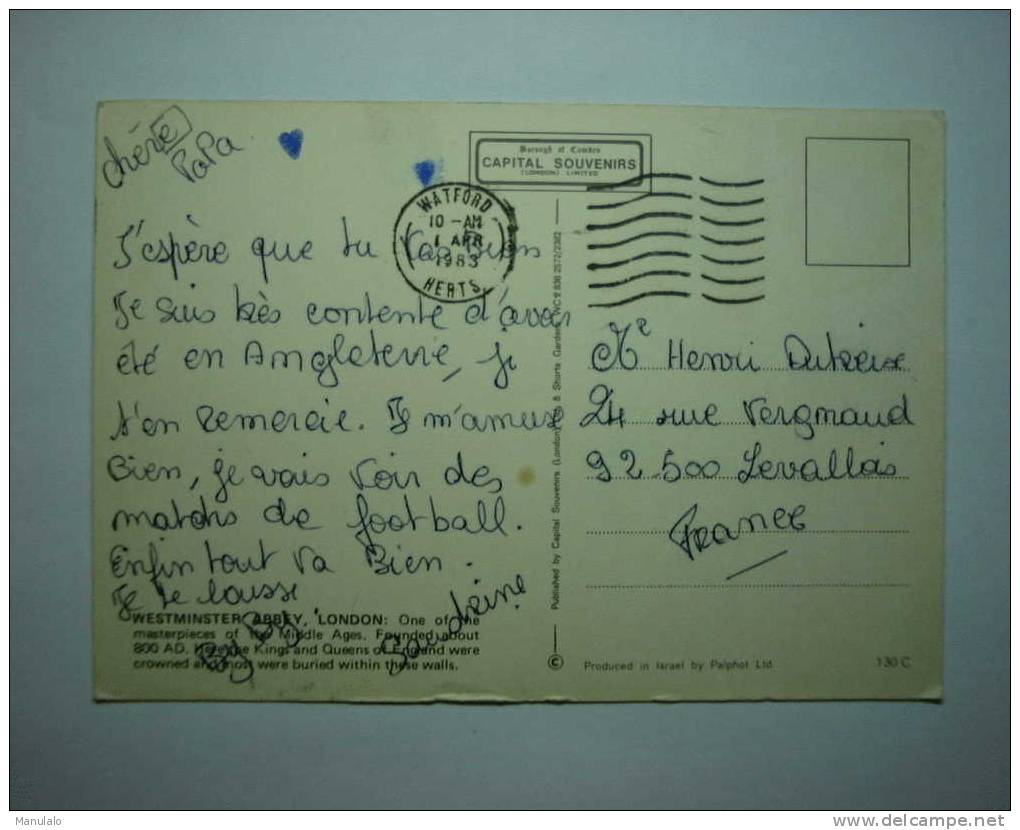 chère
PaPa
J'espère que tu vas Bien
Je suis très contente d'avoir
été en Angleterre, je
t'en remercie. Je m'amuse
Bien, je vais voir des
matchs de football.
Enfin tout va Bien.
Je te laisse
By By.
Sandrine
WESTMINSTER ABBEY, LONDON: One of the
masterpieces of the Middle Ages. Founded about
800 AD. Here the Kings and Queens of England were
crowned and most were buried within these walls.
Borough of Camden
CAPITAL SOUVENIRS
(LONDON) LIMITED
WATFORD
10 - AM
1 APR
1983
HERTS.
Published by Capital Souvenirs (London) Ltd 8 Shorts Gardens WC2 836 2572/2382
©
Mr Henri
24 rue Vergniaud
92 500 Levallois
France
Produced in Israel by Palphot Ltd.
130 C
Manulalo
www.delcampe.net